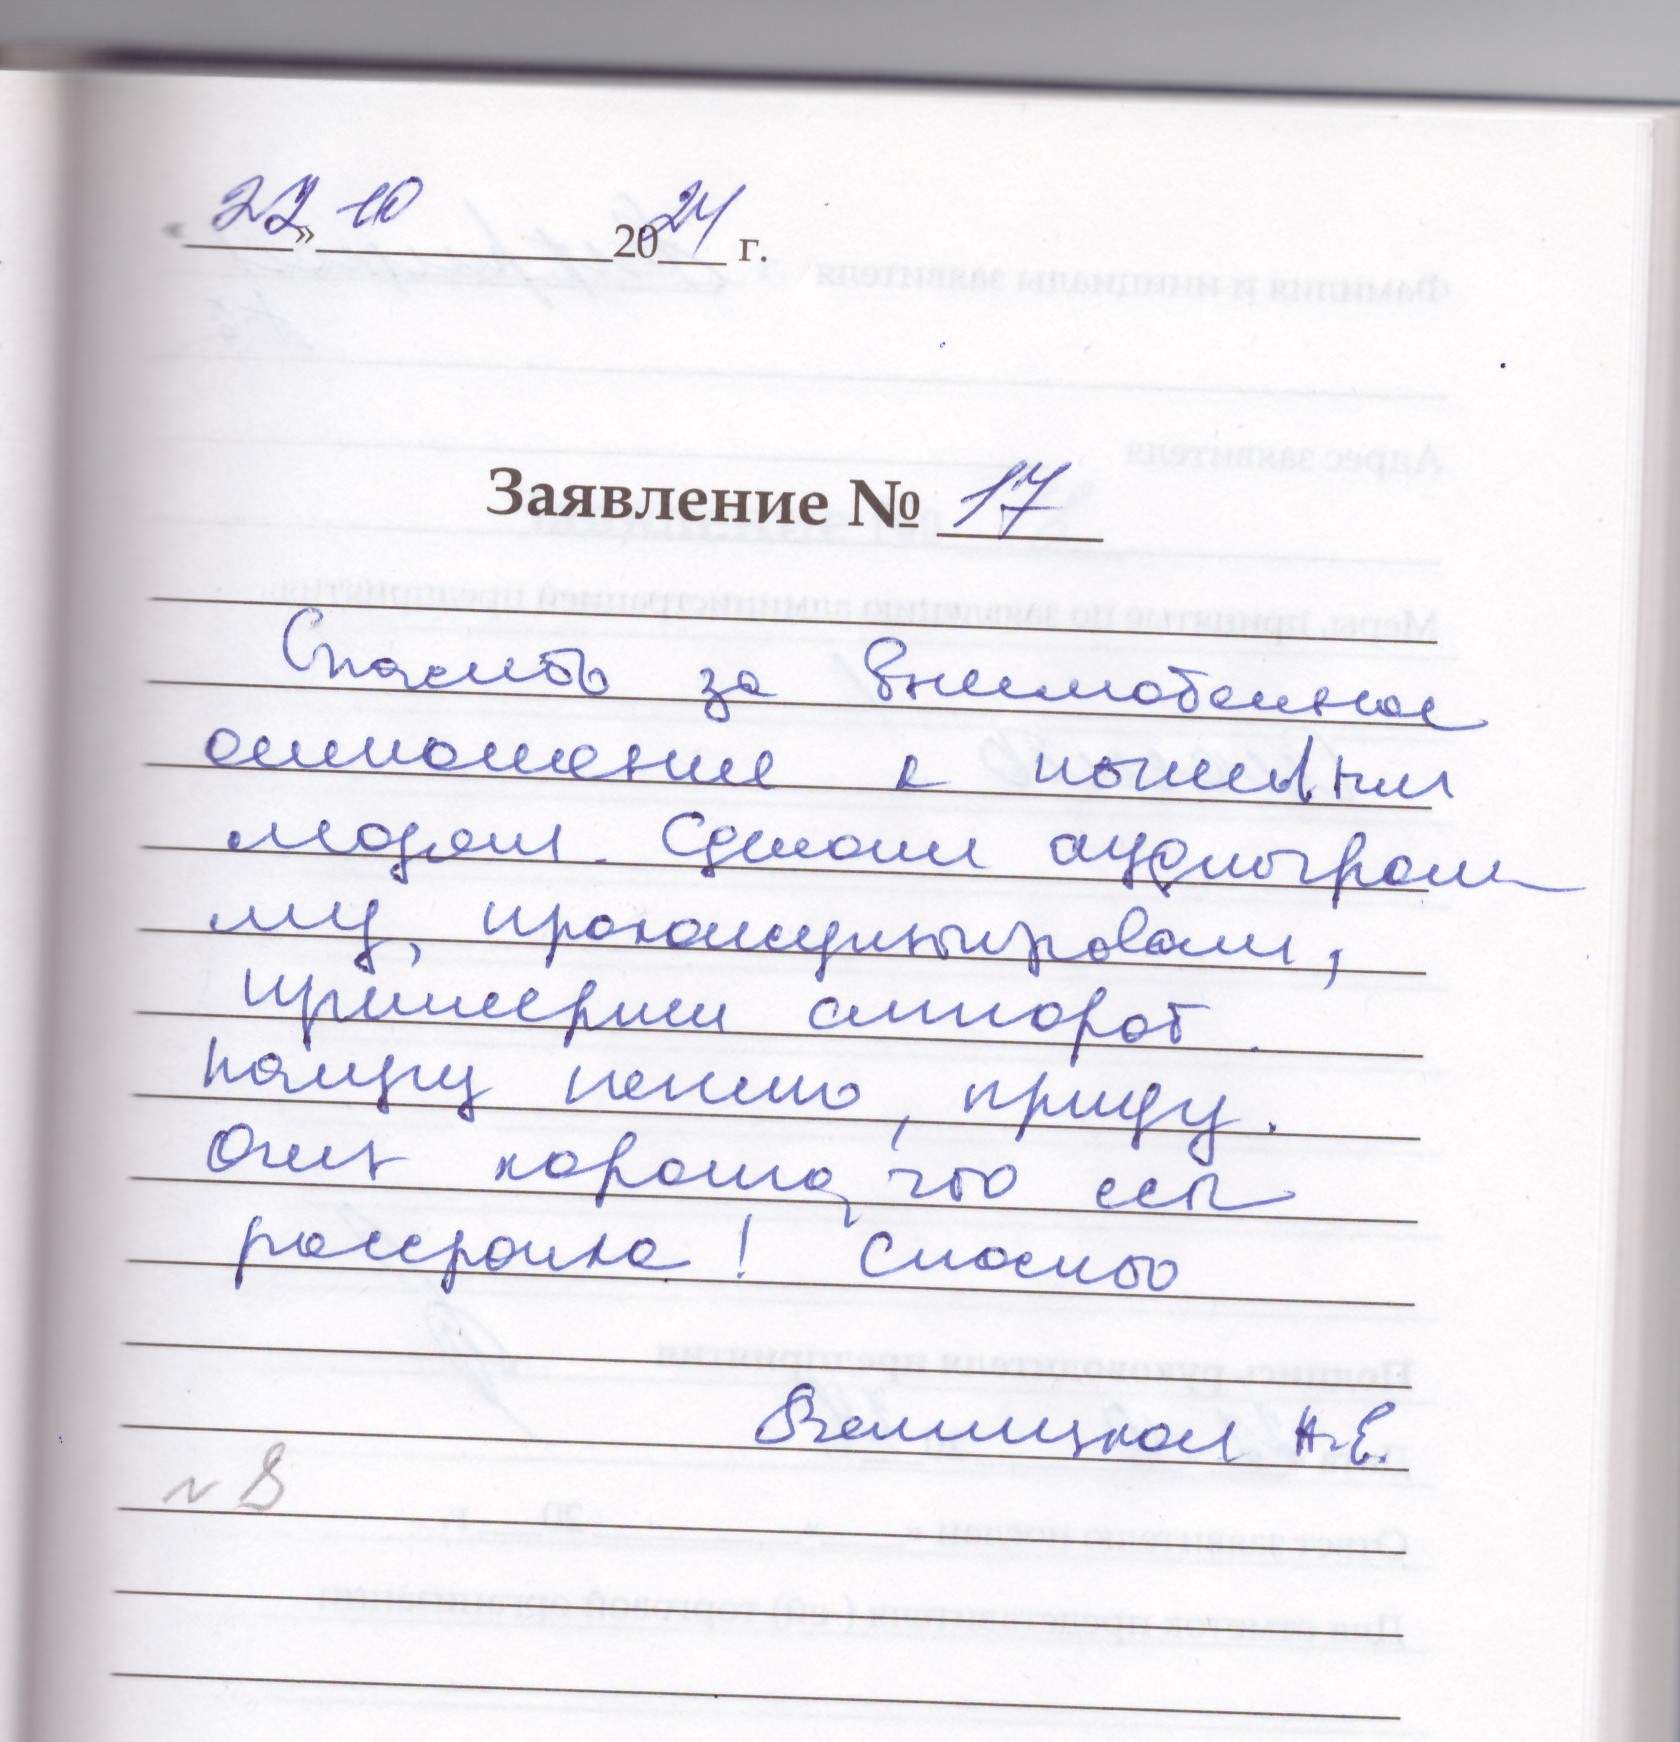 « 22 » 10 2024 г.
Заявление № 17
Спасибо за внимательное
отношение к пожилым
людям. Сделали аудиограм
му, проконсультировали,
примерили аппарат.
Получу пенсию, приду.
Очень хорошо, что есть
рассрочка! Спасибо
Н.Е.
№ 8